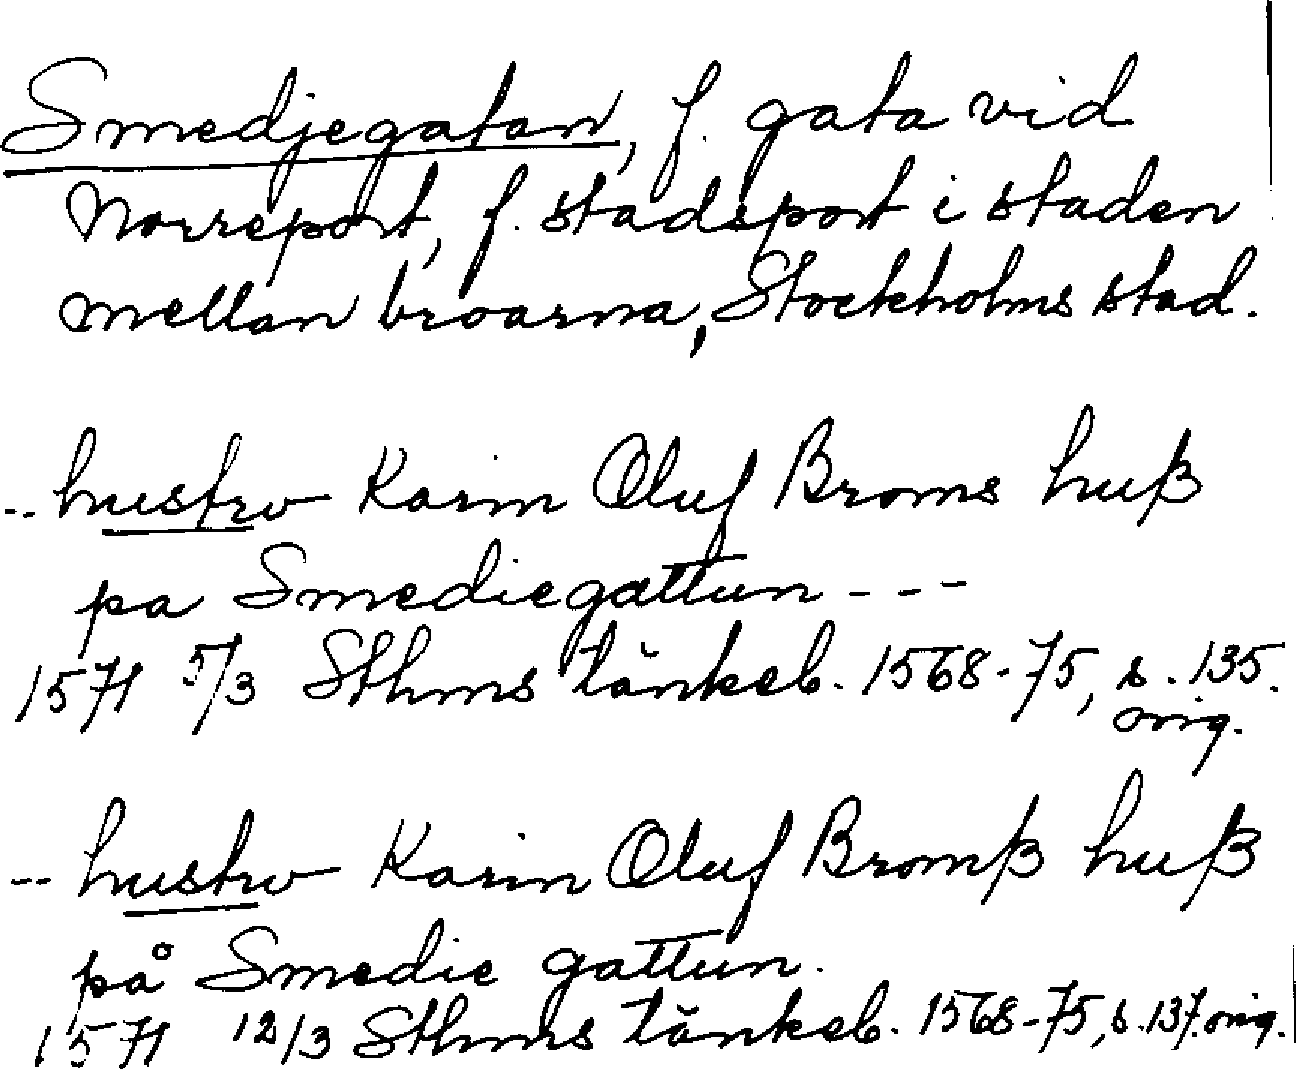 Smedjegatan, f. gata vid
Norreport, f. stadsport i staden
mellan broarna, Stockholms stad.
-- hustrv Karin Oluf Broms huß
pa Smediegattun - - -
1571 5/3 Sthms tänkeb. 1568-75, s. 135.
orig.
-- hustrv Karin Oluf Bromß huß
på Smedie gattun.
1571 12/3 Sthms tänkeb. 1568-75, s. 137. orig.